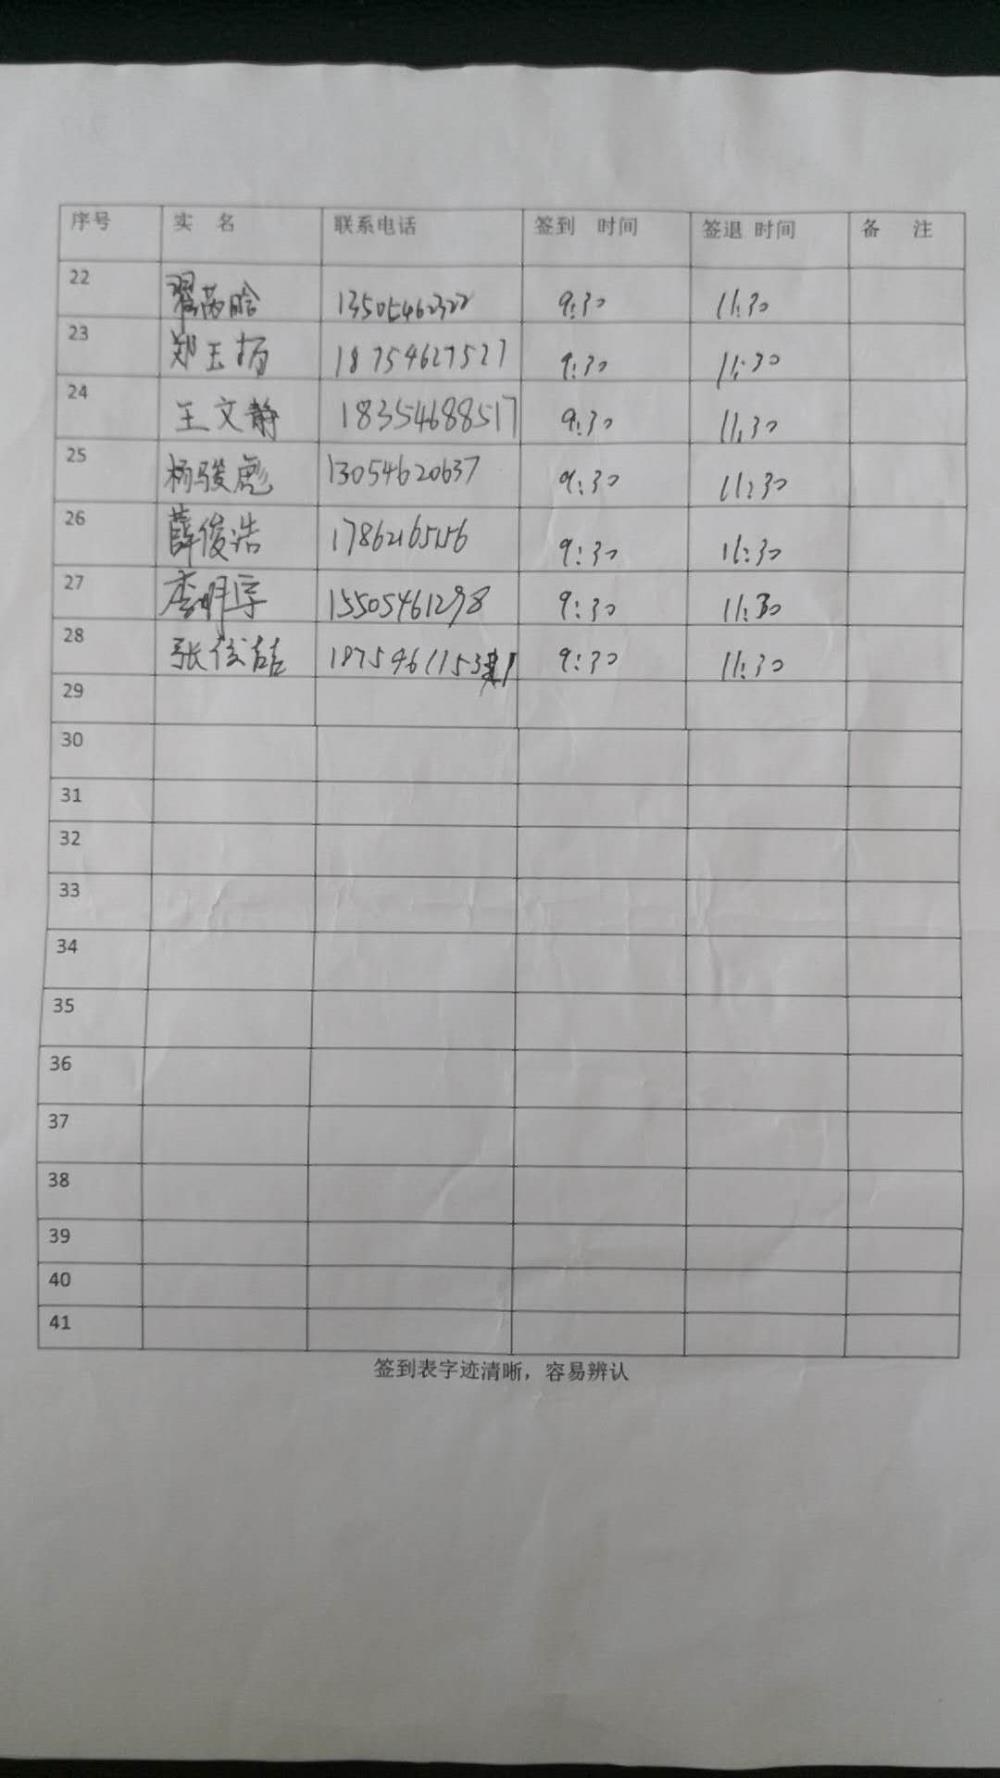 序号 实 名 联系电话 签到 时间 签退 时间 备 注
22 13505462322 9:30 11:30
23 郑玉扬 18754627527 9:30 11:30
24 王文静 18354688517 9:30 11:30
25 杨骏彪 13054620637 9:30 11:30
26 薛俊浩 9:30 11:30
27 李明宇 15505461298 9:30 11:30
28 9:30 11:30
29
30
31
32
33
34
35
36
37
38
39
40
41
签到表字迹清晰，容易辨认